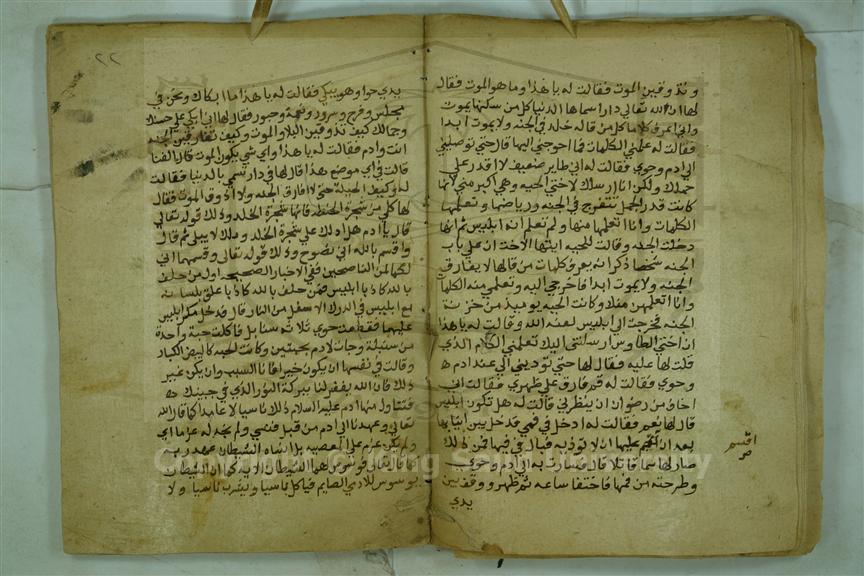 وتذوقين الموت فقالت له يا هذا وما هو الموت فقال
لها ان الله تعالى دار اسماها الدنيا كل من سكنها يموت
واني اعرف كلاما كل من قاله خلد في الجنه ولا يموت ابدا
فقالت له علمني الكلمات فما احوجني اليها قال حتي توصليني
الي ادم وحوي فقالت له اني طاير ضعيف لا اقدر علي
حملك ولكن انا ارسلك لاختي الحيه وهي اكبر مني لانها
كانت قدر الجمل تتفرج في الجنه ورياضها وتعلمها
الكلمات وانا اتعلمها منها ولم تعلم انه ابليس ثم انها
دخلت الجنه وقالت للحيه ايتها الاخت ان علي باب
الجنه شخصا ذكر انه يعرف كلمات من قالها لا يفارق
الجنه ولا يموت ابدا فاخرجي اليه وتعلمي منه الكلمات
وانا اتعلمهن منك وكانت الحيه يوميذ من خزنة
الجنه فخرجت الي ابليس لعنه الله وقالت له يا هذا
ان اختي الطاوس ارسلتني اليك تعلمني الكلام الذي
قلت لها عليه فقال لها حتي توديني الي عند ادم
وحوي فقالت له قم فارق علي ظهري فقال اني
اخاف من رضوان ان ينظرني قالت له هل تكون ابليس
قال لها نعم فقالت له ادخل في فمي فدخل بين انيابها
بعد ان عليها ان لا توذيه فبال في فيها فمن ذلك
اقسم
صح
صار لها سما قاتلا قال فسارت به الي ادم وحوي
وطرحته من فمها فاختفا ساعه ثم ظهر ووقف بين
يدي
٢٢
يدي حوا وهو يبكي فقالت له يا هذا ما ابكاك ونحن في
مجلس وفرح وسرور ونعمة وحبور فقال لها اني ابكي علي حسنك
وجمالك كيف تذوقين البلا والموت وكيف تفارقين الجنه
انت وادم فقالت له يا هذا واي شي يكون الموت قال الفنا
قالت في اي موضع هذا قال لها في دار تسمي بالدنيا فقالت
له وكيف الحيلة حتي لا افارق الجنه ولا اذوق الموت فقال
لها كلي من شجرة الحنطه فانها شجرة الخلد وذلك قوله تعالي
قال يا ادم هل ادلك علي شجرة الخلد وملك لا يبلي ثم قال
واقسم بالله اني نصوح وذلك قوله تعالي وقاسمهما اني
لكما لمن الناصحين ففي الاخبار الصحيحه اول من حلف
بالله كاذبا ابليس فمن حلف بالله كاذبا علق بلسانه
مع ابليس في الدرك الاسفل من النار قال فدخل مكر ابليس
عليهما فقطعت حوي ثلاثه سنابل فاكلت حبة واحدة
من سنبلة وجات لادم بحبتين وكانت الحبه كالبيض الكبار
وقالت في نفسها ان يكون خيرا فانا السبب وان يكن غير
ذلك فان الله يغفر لنا ببركة النور الذي في جبينك
فتناول منها ادم عليه السلام ذلك ناسيا لا عامدا كما قال الله
تعالي وعهدنا الي ادم من قبل فنسي ولم نجد له عزما اي
ولم يكن عزم علي المعصيه بل انساه الشيطان عهد ربه
قال الله تعالي فوسوس لهما الشيطان الاية كما ان الشيطان
يوسوس للادمي الصايم فياكل ناسيا ويشرب ناسيا ولا
Copyright © King Saud University